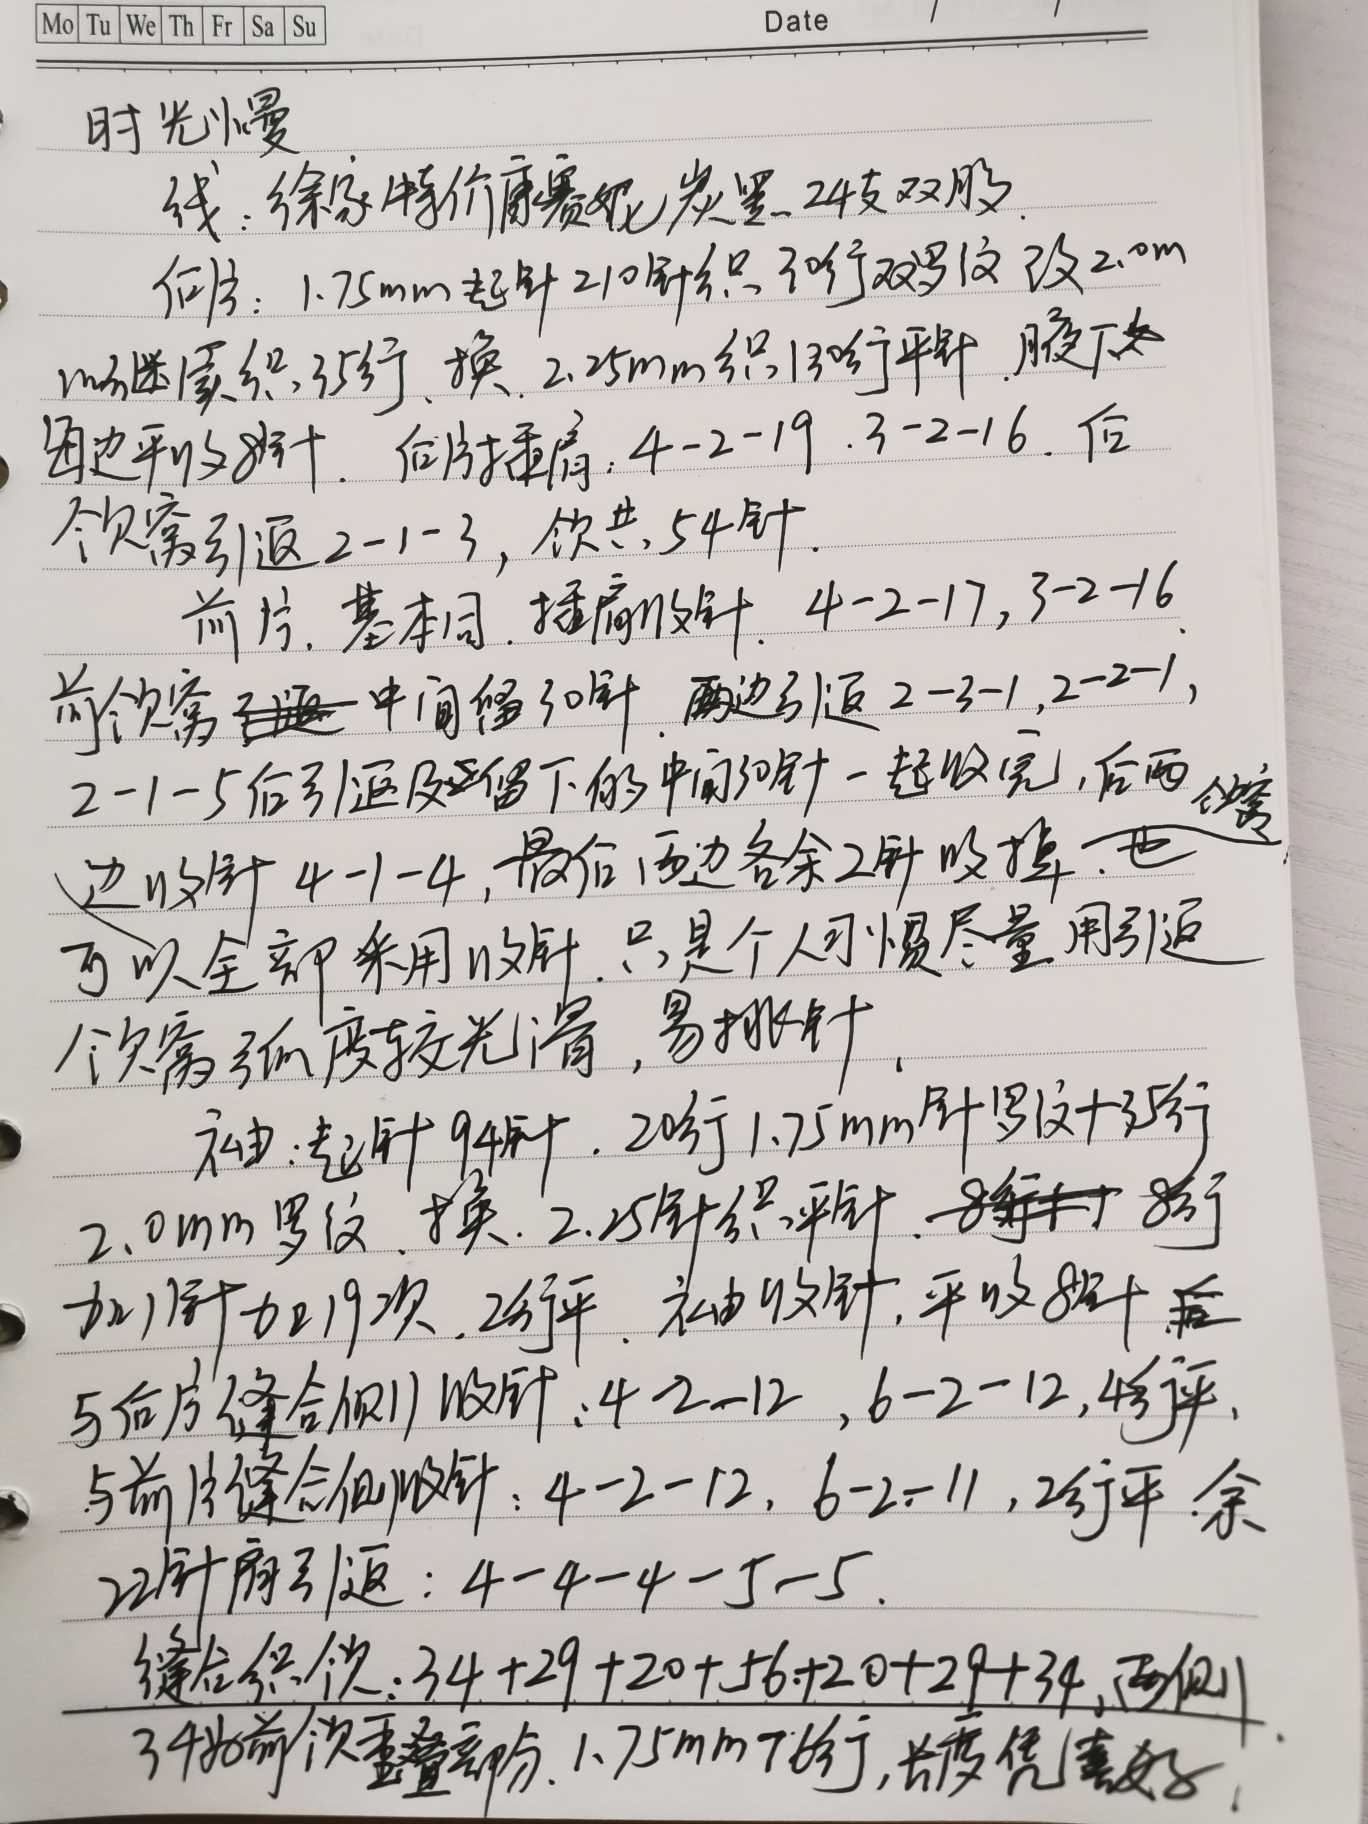 Mo Tu We Th Fr Sa Su
Date / /
时光慢
线：徐家特价康赛妮炭黑24支双股.
后片：1.75mm起针210针织30行双罗纹 改2.0m
m继续织35行、换2.25mm织130行平针.腋下
每边平收8针. 后片插肩：4-2-19.3-2-16.后
领窝引返2-1-3，领共54针.
前片.基本同.插肩收针.4-2-17,3-2-16.
前领窝 中间留30针.两边引返2-3-1,2-2-1,
2-1-5后引返及留下的中间30针一起收完,后两 领窝
边收针4-1-4,最后两边各余2针收掉.也
可以全部采用收针.只是个人习惯尽量用引返
领窝弧度较光滑,易挑针.
袖：起针94针.20行1.75mm针罗纹+35行
2.0mm罗纹.换.2.25针织平针. 8行
加1针加19次.2行平.袖收针,平收8针后
与后片缝合侧收针：4-2-12,6-2-12,4行平.
与前片缝合侧收针：4-2-12,6-2-11,2行平.余
22针肩引返：4-4-4-5-5.
缝合织领：34+29+20+56+20+29+34,两侧
34为前领重叠部分.1.75mm76行,长度凭喜好.